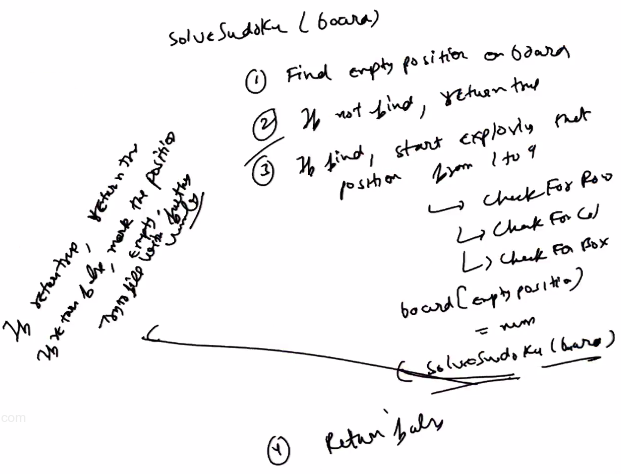 SolveSudoku (board)
① Find empty position on board
② If not find, return true
③ If find, start exploring that
position from 1 to 9
↳ Check For Row
↳ Check For Col
↳ Check For Box
board[empty position]
= num
( SolveSudoku (board)
If return true, return true
If return false, mark the position
empty,
try to fill with further
④ Return false
.com